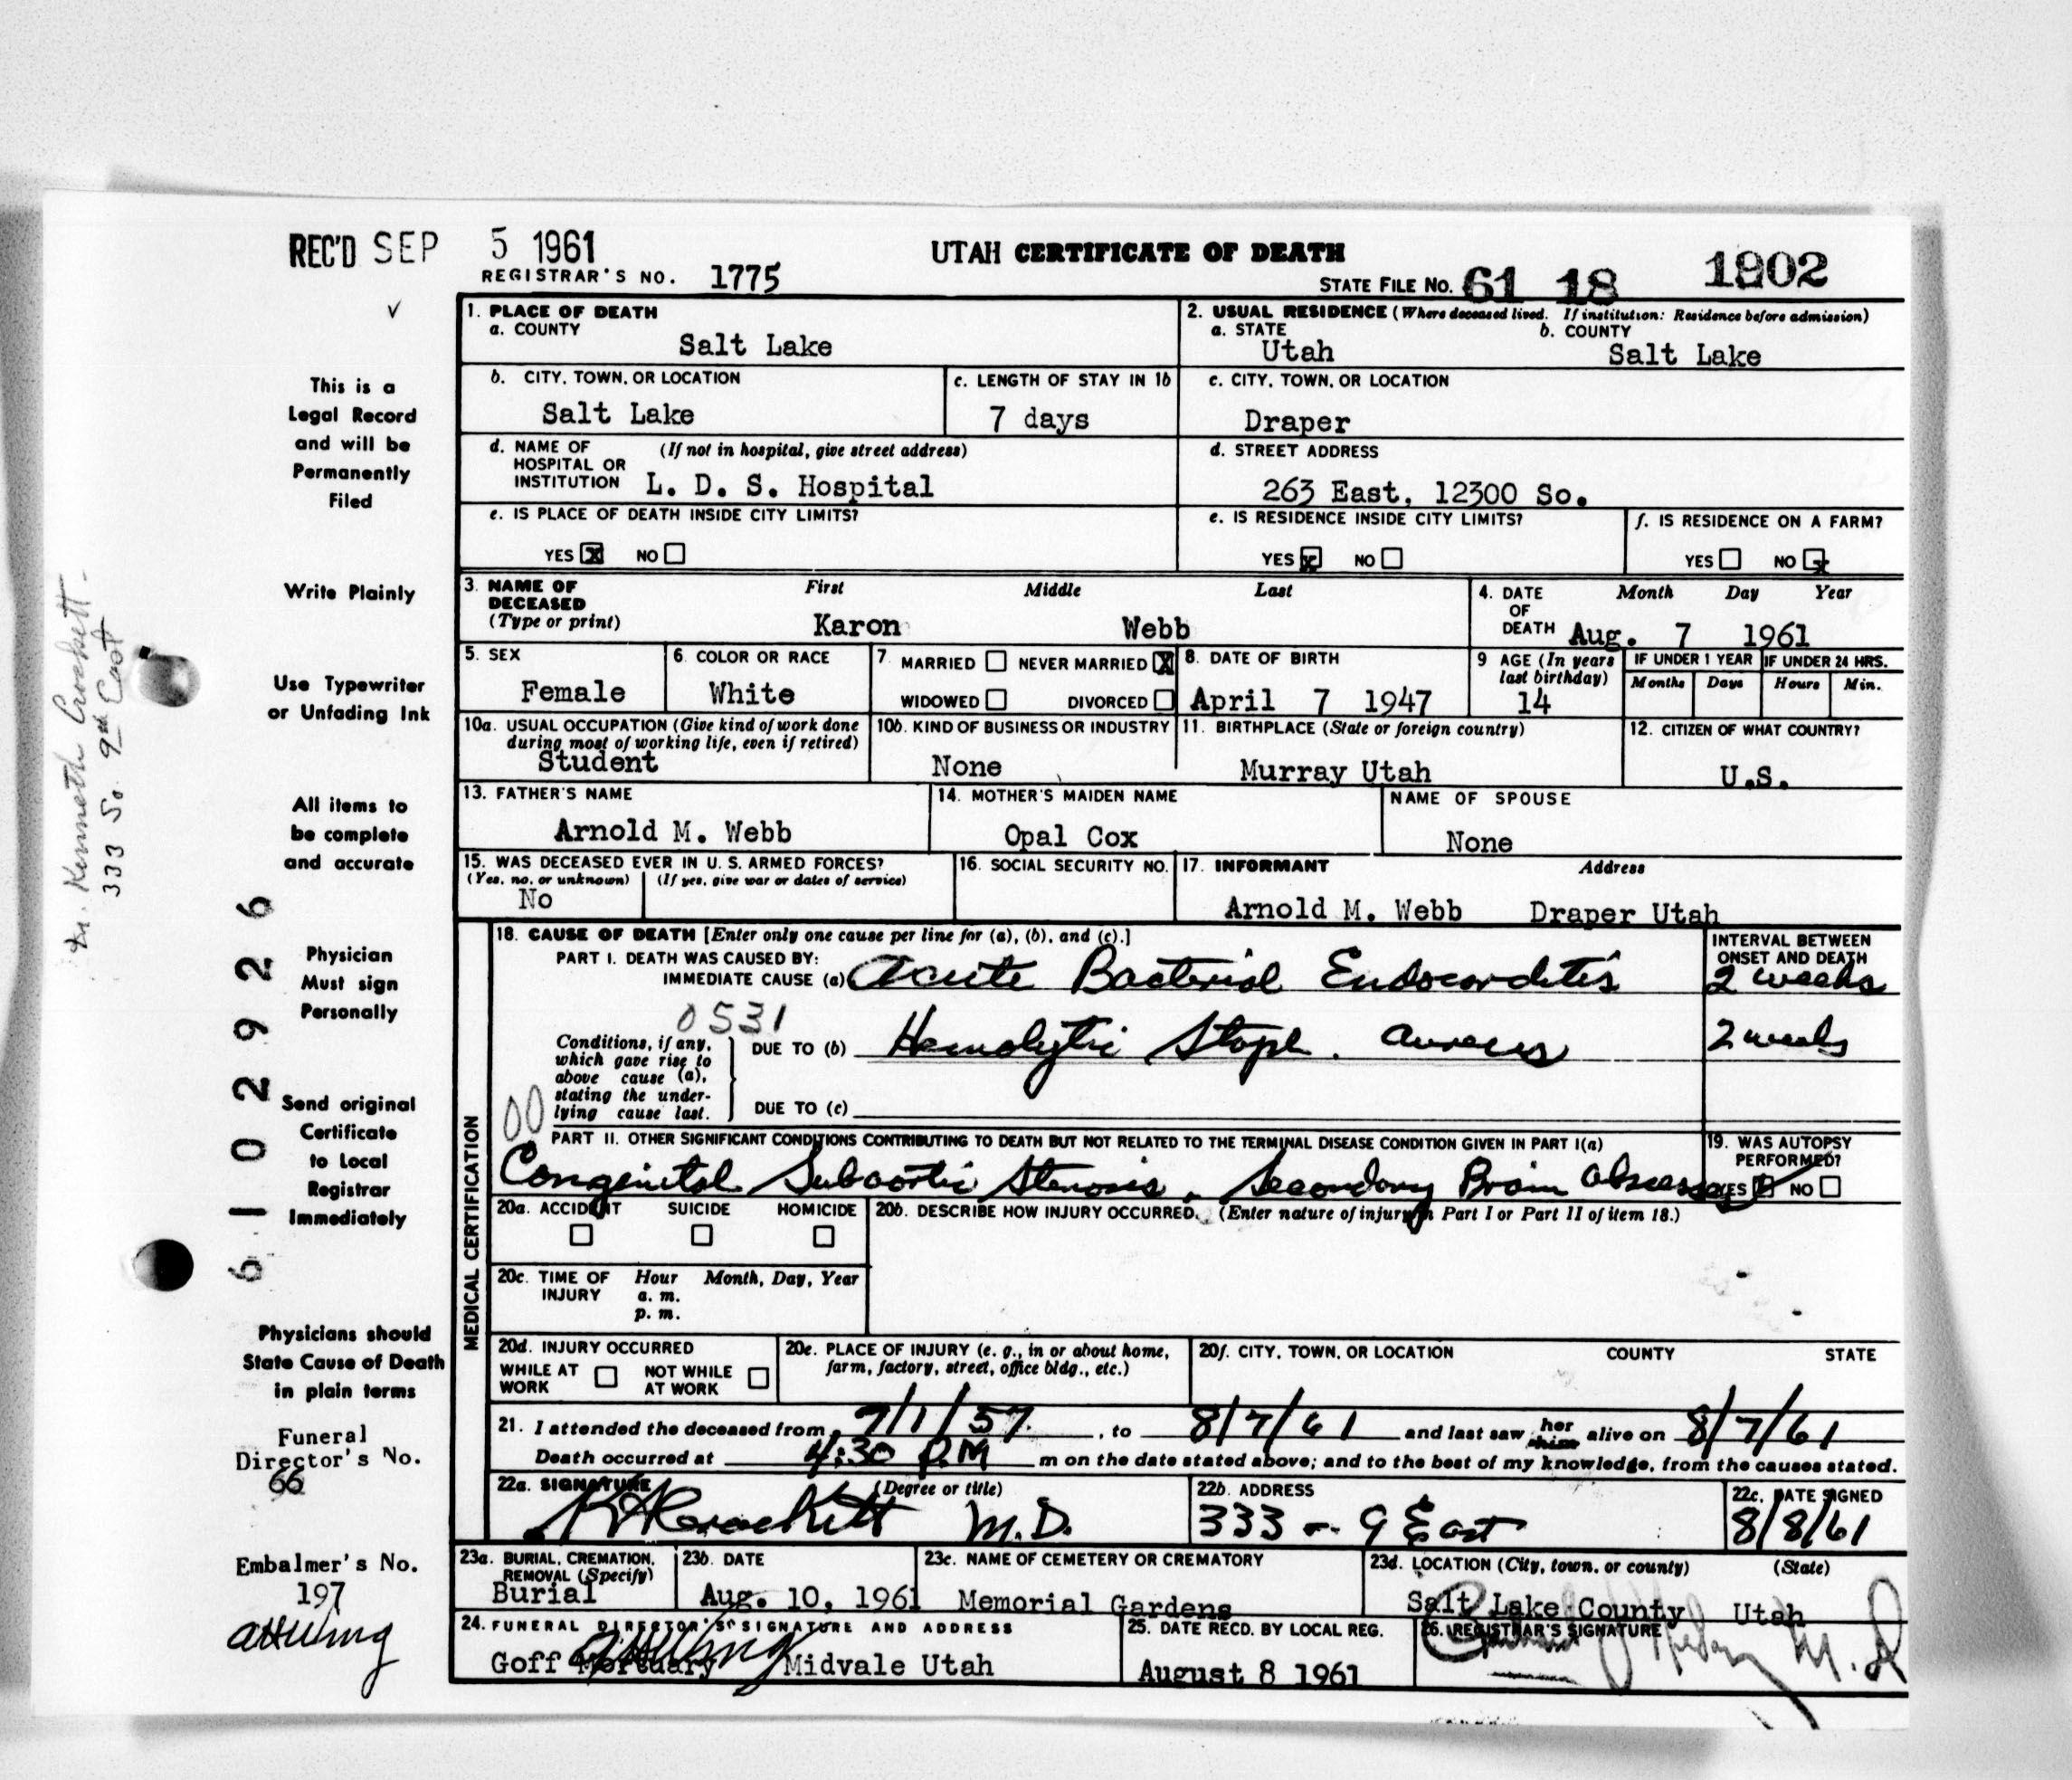 REC'D SEP 5 1961
UTAH CERTIFICATE OF DEATH
REGISTRAR'S NO. 1775
STATE FILE NO. 61 18 1802
1. PLACE OF DEATH
a. COUNTY
Salt Lake
2. USUAL RESIDENCE (Where deceased lived. If institution: Residence before admission)
a. STATE b. COUNTY
Utah Salt Lake
b. CITY, TOWN, OR LOCATION
Salt Lake
c. LENGTH OF STAY IN 1b
7 days
c. CITY, TOWN, OR LOCATION
Draper
d. NAME OF HOSPITAL OR INSTITUTION (If not in hospital, give street address)
L. D. S. Hospital
d. STREET ADDRESS
263 East, 12300 So.
e. IS PLACE OF DEATH INSIDE CITY LIMITS?
YES X NO
e. IS RESIDENCE INSIDE CITY LIMITS?
YES X NO
f. IS RESIDENCE ON A FARM?
YES NO X
3. NAME OF DECEASED (Type or print) First Middle Last
Karon Webb
4. DATE OF DEATH Month Day Year
Aug. 7 1961
5. SEX
Female
6. COLOR OR RACE
White
7. MARRIED NEVER MARRIED X
WIDOWED DIVORCED
8. DATE OF BIRTH
April 7 1947
9 AGE (In years last birthday)
14
IF UNDER 1 YEAR IF UNDER 24 HRS.
Months Days Hours Min.
10a. USUAL OCCUPATION (Give kind of work done during most of working life, even if retired)
Student
10b. KIND OF BUSINESS OR INDUSTRY
None
11. BIRTHPLACE (State or foreign country)
Murray Utah
12. CITIZEN OF WHAT COUNTRY?
U.S.
13. FATHER'S NAME
Arnold M. Webb
14. MOTHER'S MAIDEN NAME
Opal Cox
NAME OF SPOUSE
None
15. WAS DECEASED EVER IN U. S. ARMED FORCES?
(Yes, no, or unknown) (If yes, give war or dates of service)
No
16. SOCIAL SECURITY NO.
17. INFORMANT Address
Arnold M. Webb Draper Utah
MEDICAL CERTIFICATION
18. CAUSE OF DEATH [Enter only one cause per line for (a), (b), and (c).]
INTERVAL BETWEEN ONSET AND DEATH
PART I. DEATH WAS CAUSED BY:
IMMEDIATE CAUSE (a) Acute Bacterial Endocarditis 2 weeks
0531
Conditions, if any, which gave rise to above cause (a), stating the underlying cause last.
DUE TO (b) Hemolytic Staph. aureus 2 weeks
DUE TO (c)
00
PART II. OTHER SIGNIFICANT CONDITIONS CONTRIBUTING TO DEATH BUT NOT RELATED TO THE TERMINAL DISEASE CONDITION GIVEN IN PART I(a)
Congenital Subaortic Stenosis, Secondary Brain abscesses
19. WAS AUTOPSY PERFORMED?
YES NO
20a. ACCIDENT SUICIDE HOMICIDE
20b. DESCRIBE HOW INJURY OCCURRED. (Enter nature of injury in Part I or Part II of item 18.)
20c. TIME OF INJURY Hour Month, Day, Year
a. m.
p. m.
20d. INJURY OCCURRED
WHILE AT WORK NOT WHILE AT WORK
20e. PLACE OF INJURY (e. g., in or about home, farm, factory, street, office bldg., etc.)
20f. CITY, TOWN, OR LOCATION COUNTY STATE
21. I attended the deceased from 7/1/57, to 8/7/61 and last saw her him alive on 8/7/61
Death occurred at 4:30 P.M m on the date stated above; and to the best of my knowledge, from the causes stated.
22a. SIGNATURE (Degree or title)
KACrockett M.D.
22b. ADDRESS
333 - 9 East
22c. DATE SIGNED
8/8/61
23a. BURIAL, CREMATION, REMOVAL (Specify)
Burial
23b. DATE
Aug. 10, 1961
23c. NAME OF CEMETERY OR CREMATORY
Memorial Gardens
23d. LOCATION (City, town, or county) (State)
Salt Lake County Utah
24. FUNERAL DIRECTOR'S SIGNATURE AND ADDRESS
Goff Mortuary Midvale Utah
25. DATE RECD. BY LOCAL REG.
August 8 1961
26. REGISTRAR'S SIGNATURE
M.D
This is a
Legal Record
and will be
Permanently
Filed
Write Plainly
Use Typewriter
or Unfading Ink
All items to
be complete
and accurate
Physician
Must sign
Personally
Send original
Certificate
to Local
Registrar
Immediately
Physicians should
State Cause of Death
in plain terms
Funeral
Director's No.
66
Embalmer's No.
197
6102926
Dr. Kenneth Crockett -
333 So. 9th East